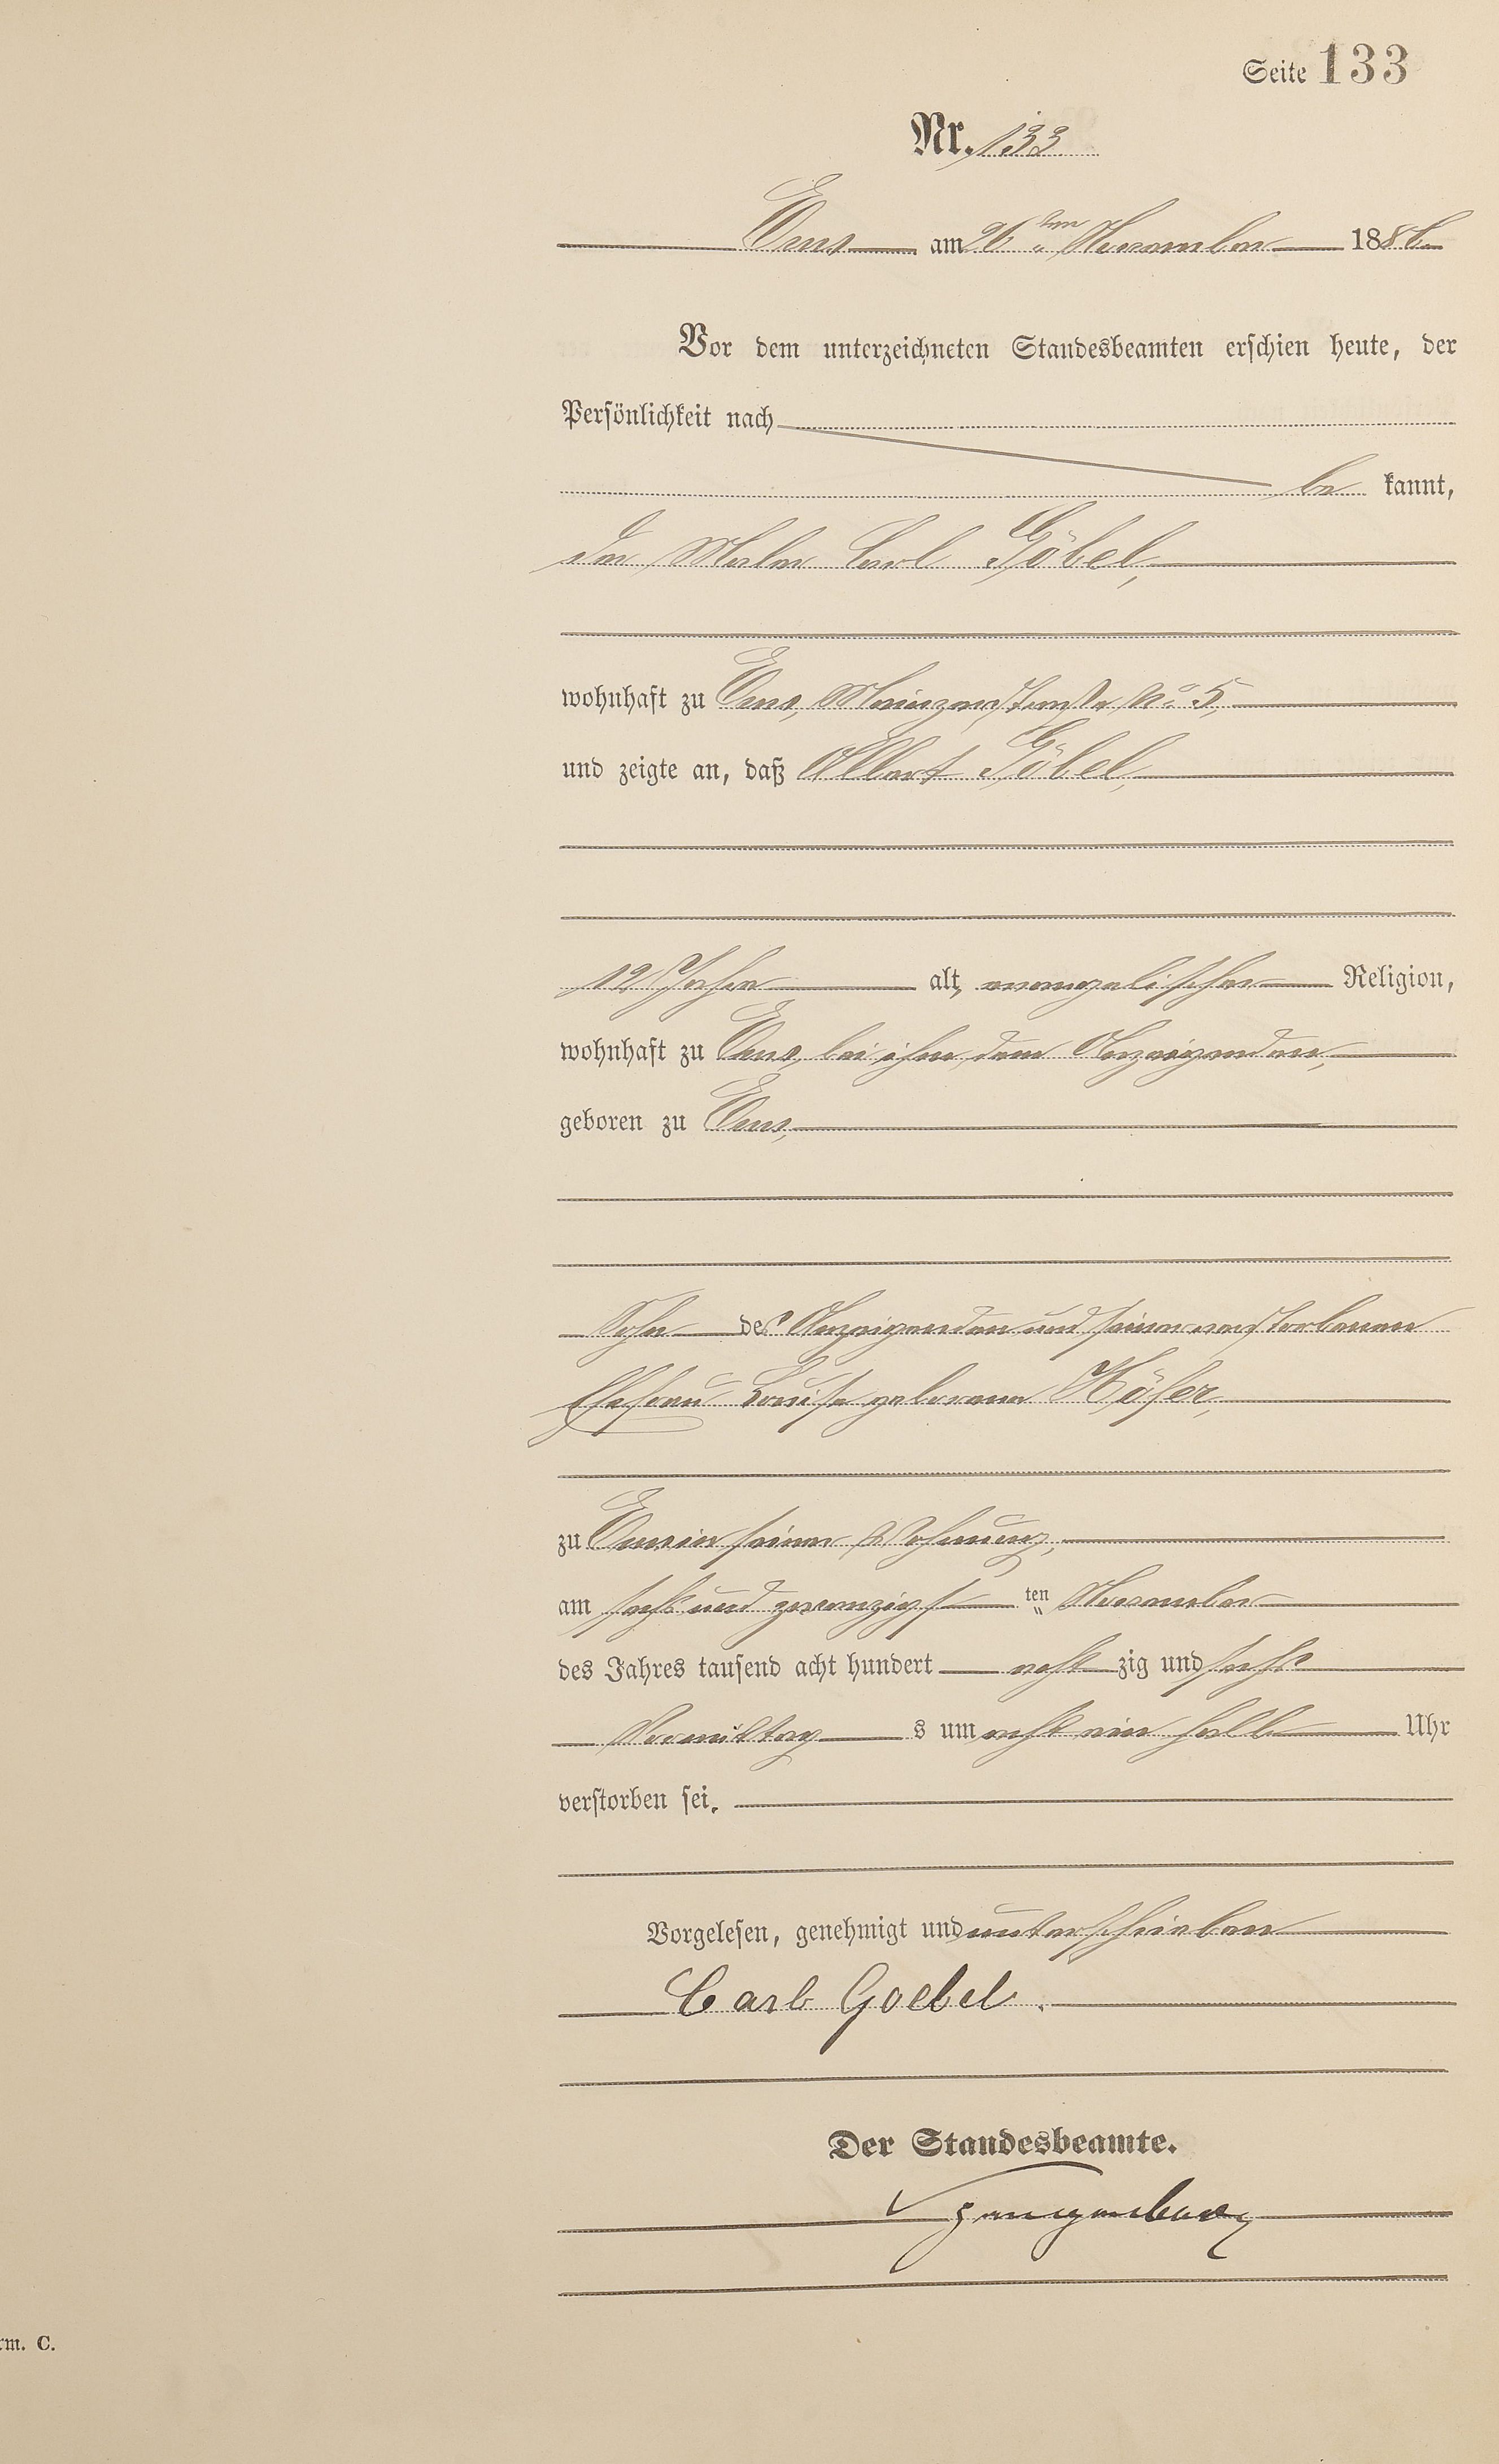 Seite 133
Nr. 133
Ems am 26ten November 1886
Vor dem unterzeichneten Standesbeamten erschien heute, der
Persönlichkeit nach
be kannt,
der Maler Carl Göbel,
wohnhaft zu Ems, Mainzerstraße No 5,
und zeigte an, daß Albert Göbel,
12 Jahre alt, evangelischer Religion,
wohnhaft zu Ems, bei ihm, dem Anzeigenden,
geboren zu Ems,
Sohn des Anzeigenden und seiner verstorbenen
Ehefrau Louise geborene Höfer,
zu Ems in seiner Wohnung,
am sechs und zwanzigsten November
des Jahres tausend acht hundert acht zig und sechs
Vormittag s um acht ein halb Uhr
verstorben sei.
Vorgelesen, genehmigt und unterschrieben
Carl Goebel.
Der Standesbeamte.
rm. C.